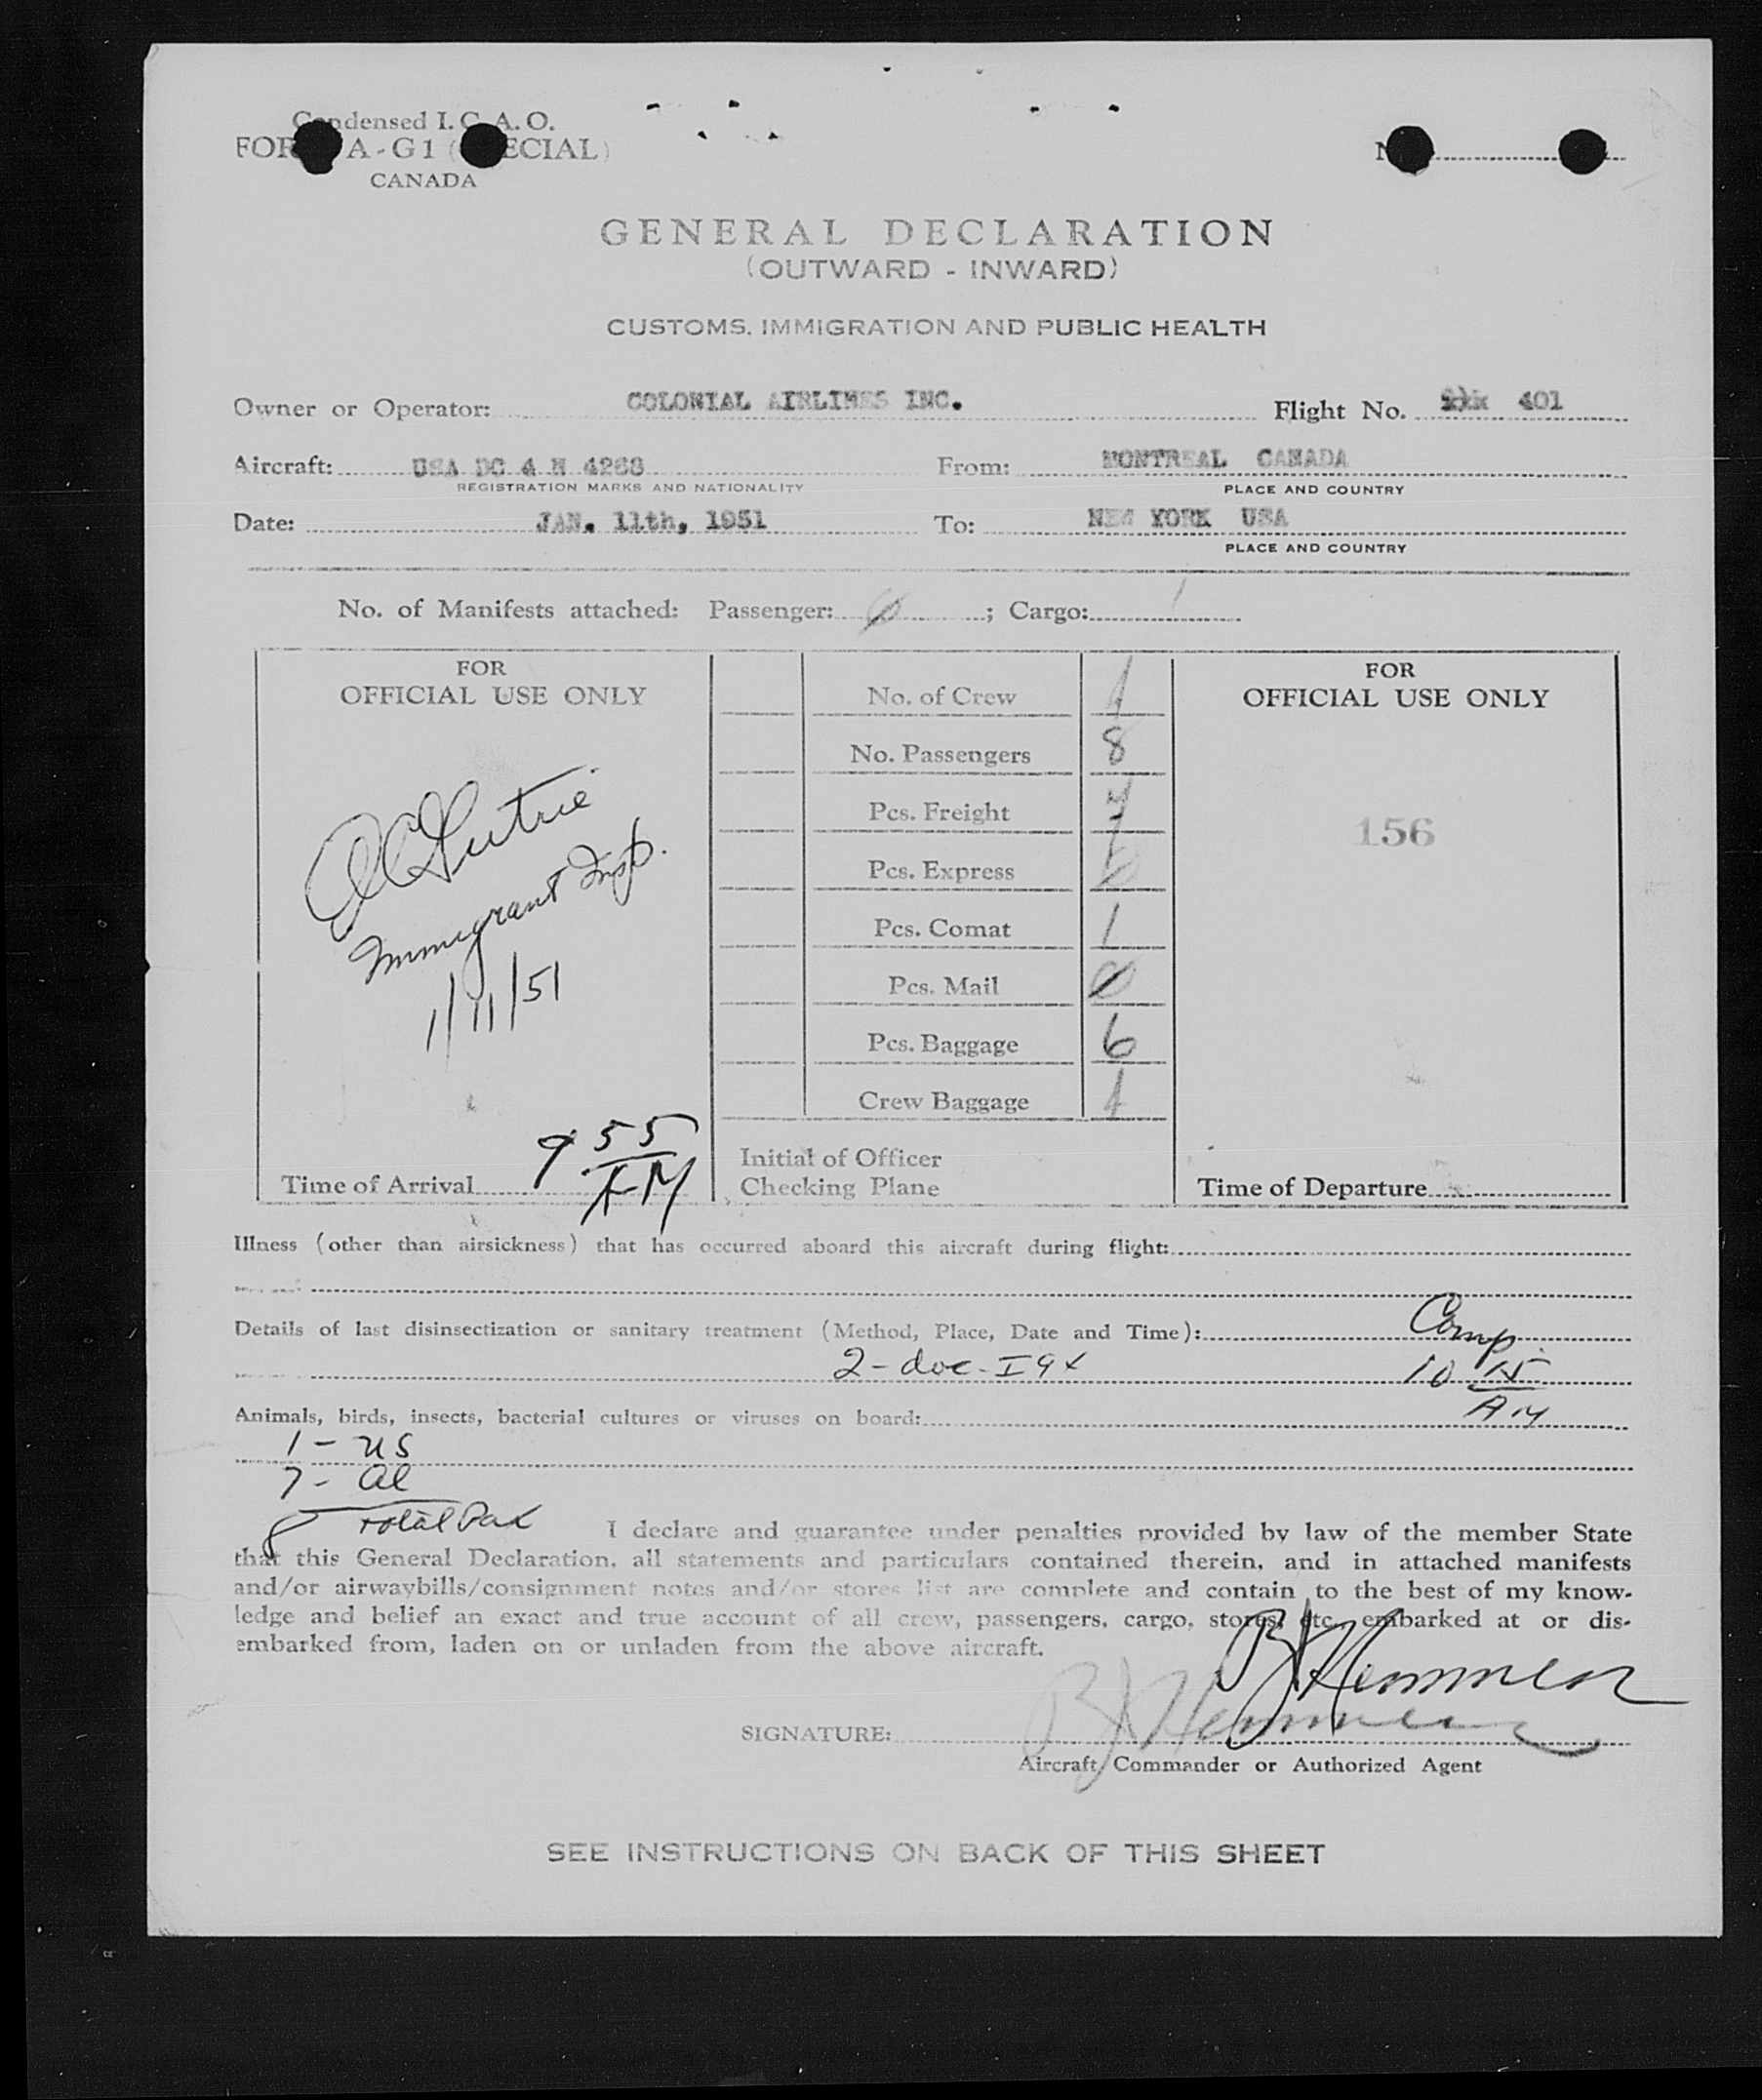 Condensed I. C. A. O.
FORM A-G1 (SPECIAL)
CANADA
GENERAL DECLARATION
(OUTWARD - INWARD)
CUSTOMS, IMMIGRATION AND PUBLIC HEALTH
Owner or Operator: COLONIAL AIRLINES INC. Flight No. 401
Aircraft: USA DC 4 N 4268 From: MONTREAL CANADA
REGISTRATION MARKS AND NATIONALITY PLACE AND COUNTRY
Date: JAN. 11th, 1951 To: NEW YORK USA
PLACE AND COUNTRY
No. of Manifests attached: Passenger: ; Cargo: 1
FOR
OFFICIAL USE ONLY
Immigrant Insp.
1/11/51
Time of Arrival 9 55
AM
No. of Crew
No. Passengers 8
Pcs. Freight
Pcs. Express
Pcs. Comat 1
Pcs. Mail 0
Pcs. Baggage 6
Crew Baggage
Initial of Officer
Checking Plane
FOR
OFFICIAL USE ONLY
156
Time of Departure
Illness (other than airsickness) that has occurred aboard this aircraft during flight:
Details of last disinsectization or sanitary treatment (Method, Place, Date and Time): Comp.
2 - doc - I 94 10 15
AM
Animals, birds, insects, bacterial cultures or viruses on board:
1 - US
7 - al
8 total Pax
I declare and guarantee under penalties provided by law of the member State
that this General Declaration, all statements and particulars contained therein, and in attached manifests
and/or airwaybills/consignment notes and/or stores list are complete and contain to the best of my know-
ledge and belief an exact and true account of all crew, passengers, cargo, stores, etc. embarked at or dis-
embarked from, laden on or unladen from the above aircraft.
SIGNATURE:
Aircraft Commander or Authorized Agent
SEE INSTRUCTIONS ON BACK OF THIS SHEET